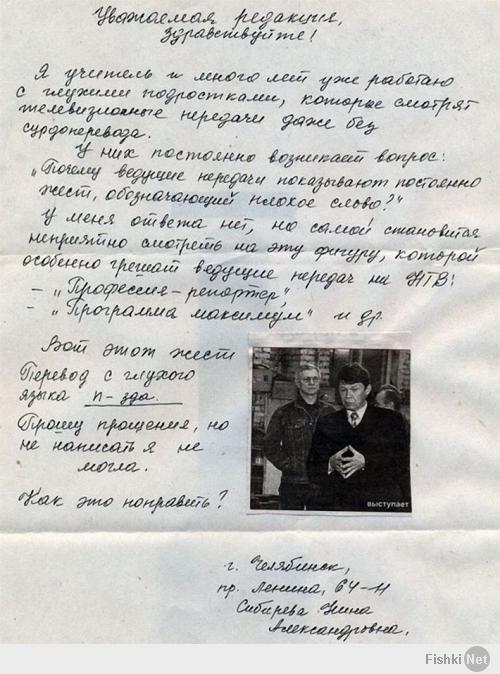 Уважаемая редакция,
здравствуйте!
Я учитель и много лет уже работаю
с глухими подростками, которые смотрят
телевизионные передачи даже без
сурдоперевода.
У них постоянно возникает вопрос:
„Почему ведущие передачи показывают постоянно
жест, обозначающий плохое слово?"
У меня ответа нет, но самой становится
неприятно смотреть на эту фигуру, которой
особенно грешат ведущие передач на НТВ:
– „Профессия – репортер",
– „Программа максимум" и др.
Вот этот жест
Перевод с глухого
языка п-зда.
Прошу прощения, но
не написать я не
могла.
Как это поправить?
выступает
г. Челябинск,
пр. Ленина, 64-11
Сибирева Нина
Александровна.
Fishki Net